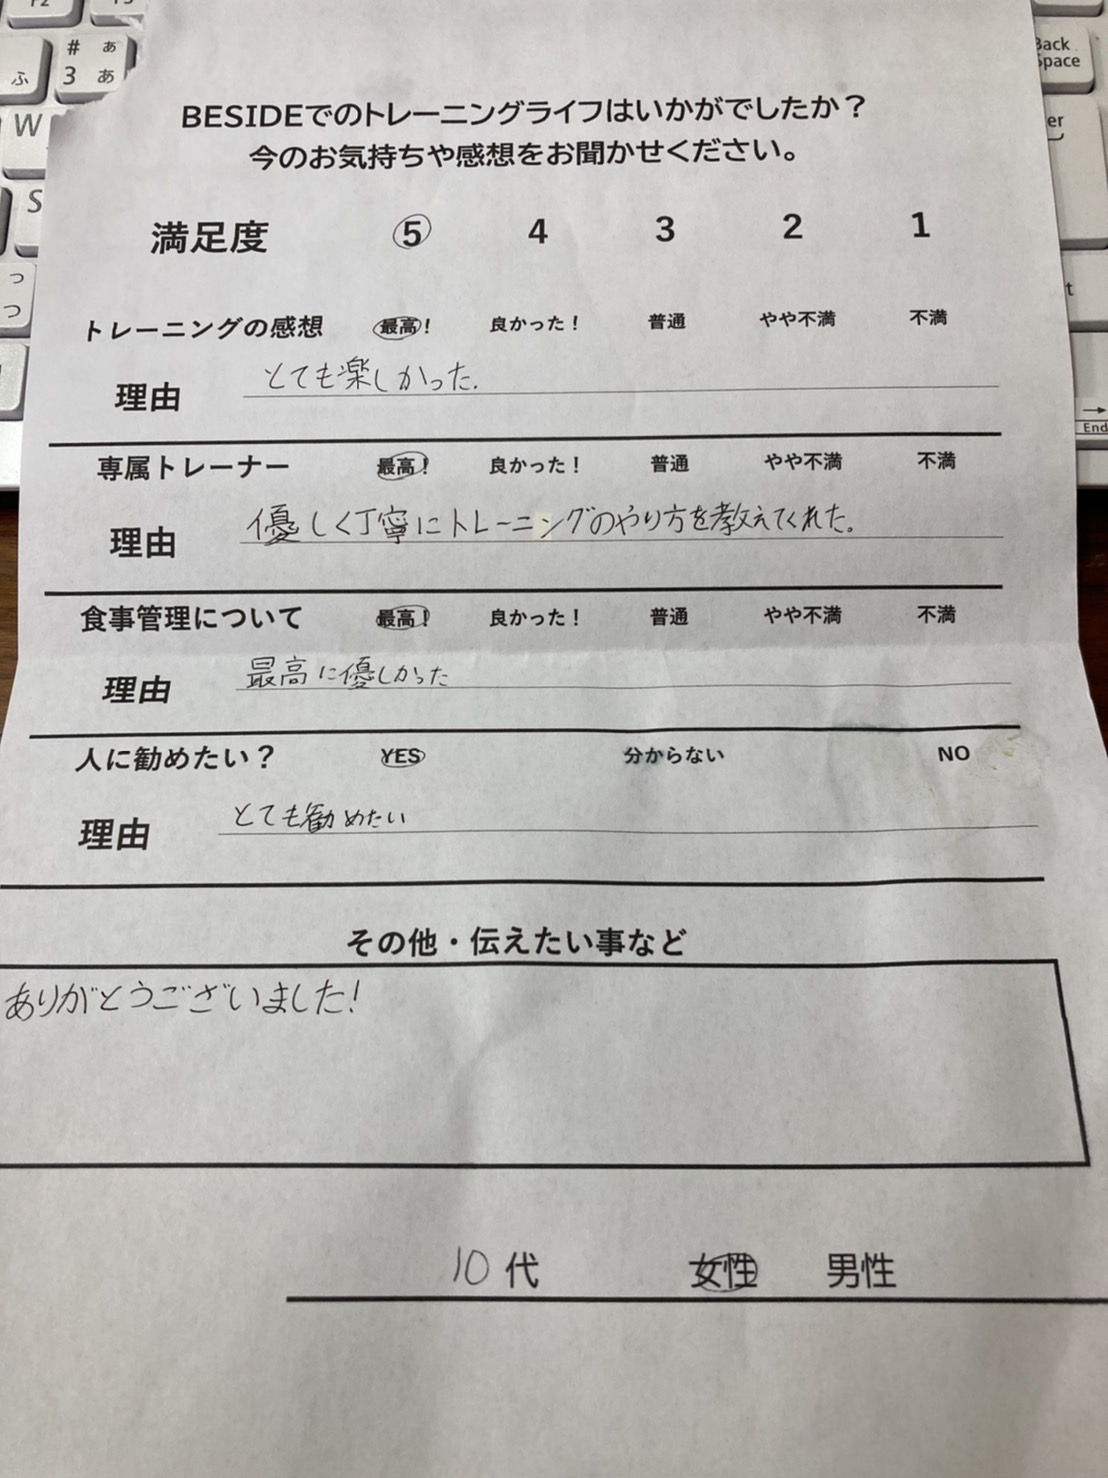 F2
F3
# あ
3 あ
ふ
W
S
つ
つ
Back
Space
er
t
→
End
BESIDEでのトレーニングライフはいかがでしたか？
今のお気持ちや感想をお聞かせください。
満足度 5 4 3 2 1
トレーニングの感想 最高！ 良かった！ 普通 やや不満 不満
理由 とても楽しかった.
専属トレーナー 最高！ 良かった！ 普通 やや不満 不満
理由 優しく丁寧にトレーニングのやり方を教えてくれた。
食事管理について 最高！ 良かった！ 普通 やや不満 不満
理由 最高に優しかった
人に勧めたい？ YES 分からない NO
理由 とても勧めたい
その他・伝えたい事など
ありがとうございました!
10代 女性 男性